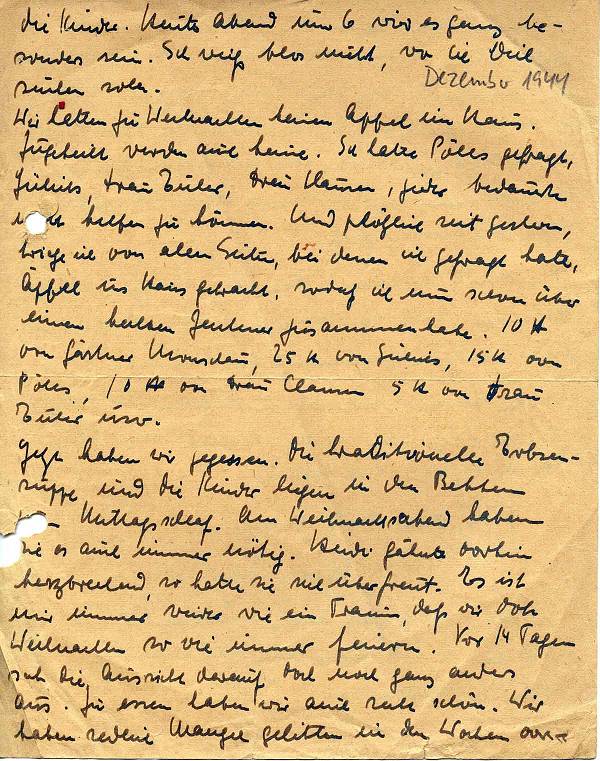 die Kinder. Heute abend um 6 wird es ganz be-
sonders sein. Ich weiß blos nicht, wo ich Dich
suchen soll.
Dezember 1944
Wir hatten zu Weihnachten keinen Apfel im Haus.
Zugeteilt werden auch keine. Ich hatte Pölls gefragt,
Frau Clausen, jeder bedauerte
nicht helfen zu können. Und plötzlich seit gestern,
kriege ich von allen Seiten, bei denen ich gefragt hatte,
Äpfel ins Haus gebracht, sodaß ich nun schon über
einen halben Zentner zusammenhabe. 10 ℔
von Gärtner 25 ℔ von 15 ℔ von
Pölls, 10 ℔ von Frau Clausen 5 ℔ von Frau
usw.
Jetzt haben wir gegessen. Die traditionelle Erbsen-
suppe und die Kinder liegen in den Betten
zum Mittagsschlaf. Am Weihnachtsabend haben
sie es auch immer nötig. Heidi gähnte vorhin
herzbrechend, so hatte sie sich überfreut. Es ist
mir immer wieder wie ein Traum, daß wir doch
Weihnachten so wie immer feiern. Vor 14 Tagen
sah die Aussicht darauf doch noch ganz anders
aus. Zu essen haben wir auch recht schön. Wir
haben redlich Mangel gelitten in den Wochen vor-